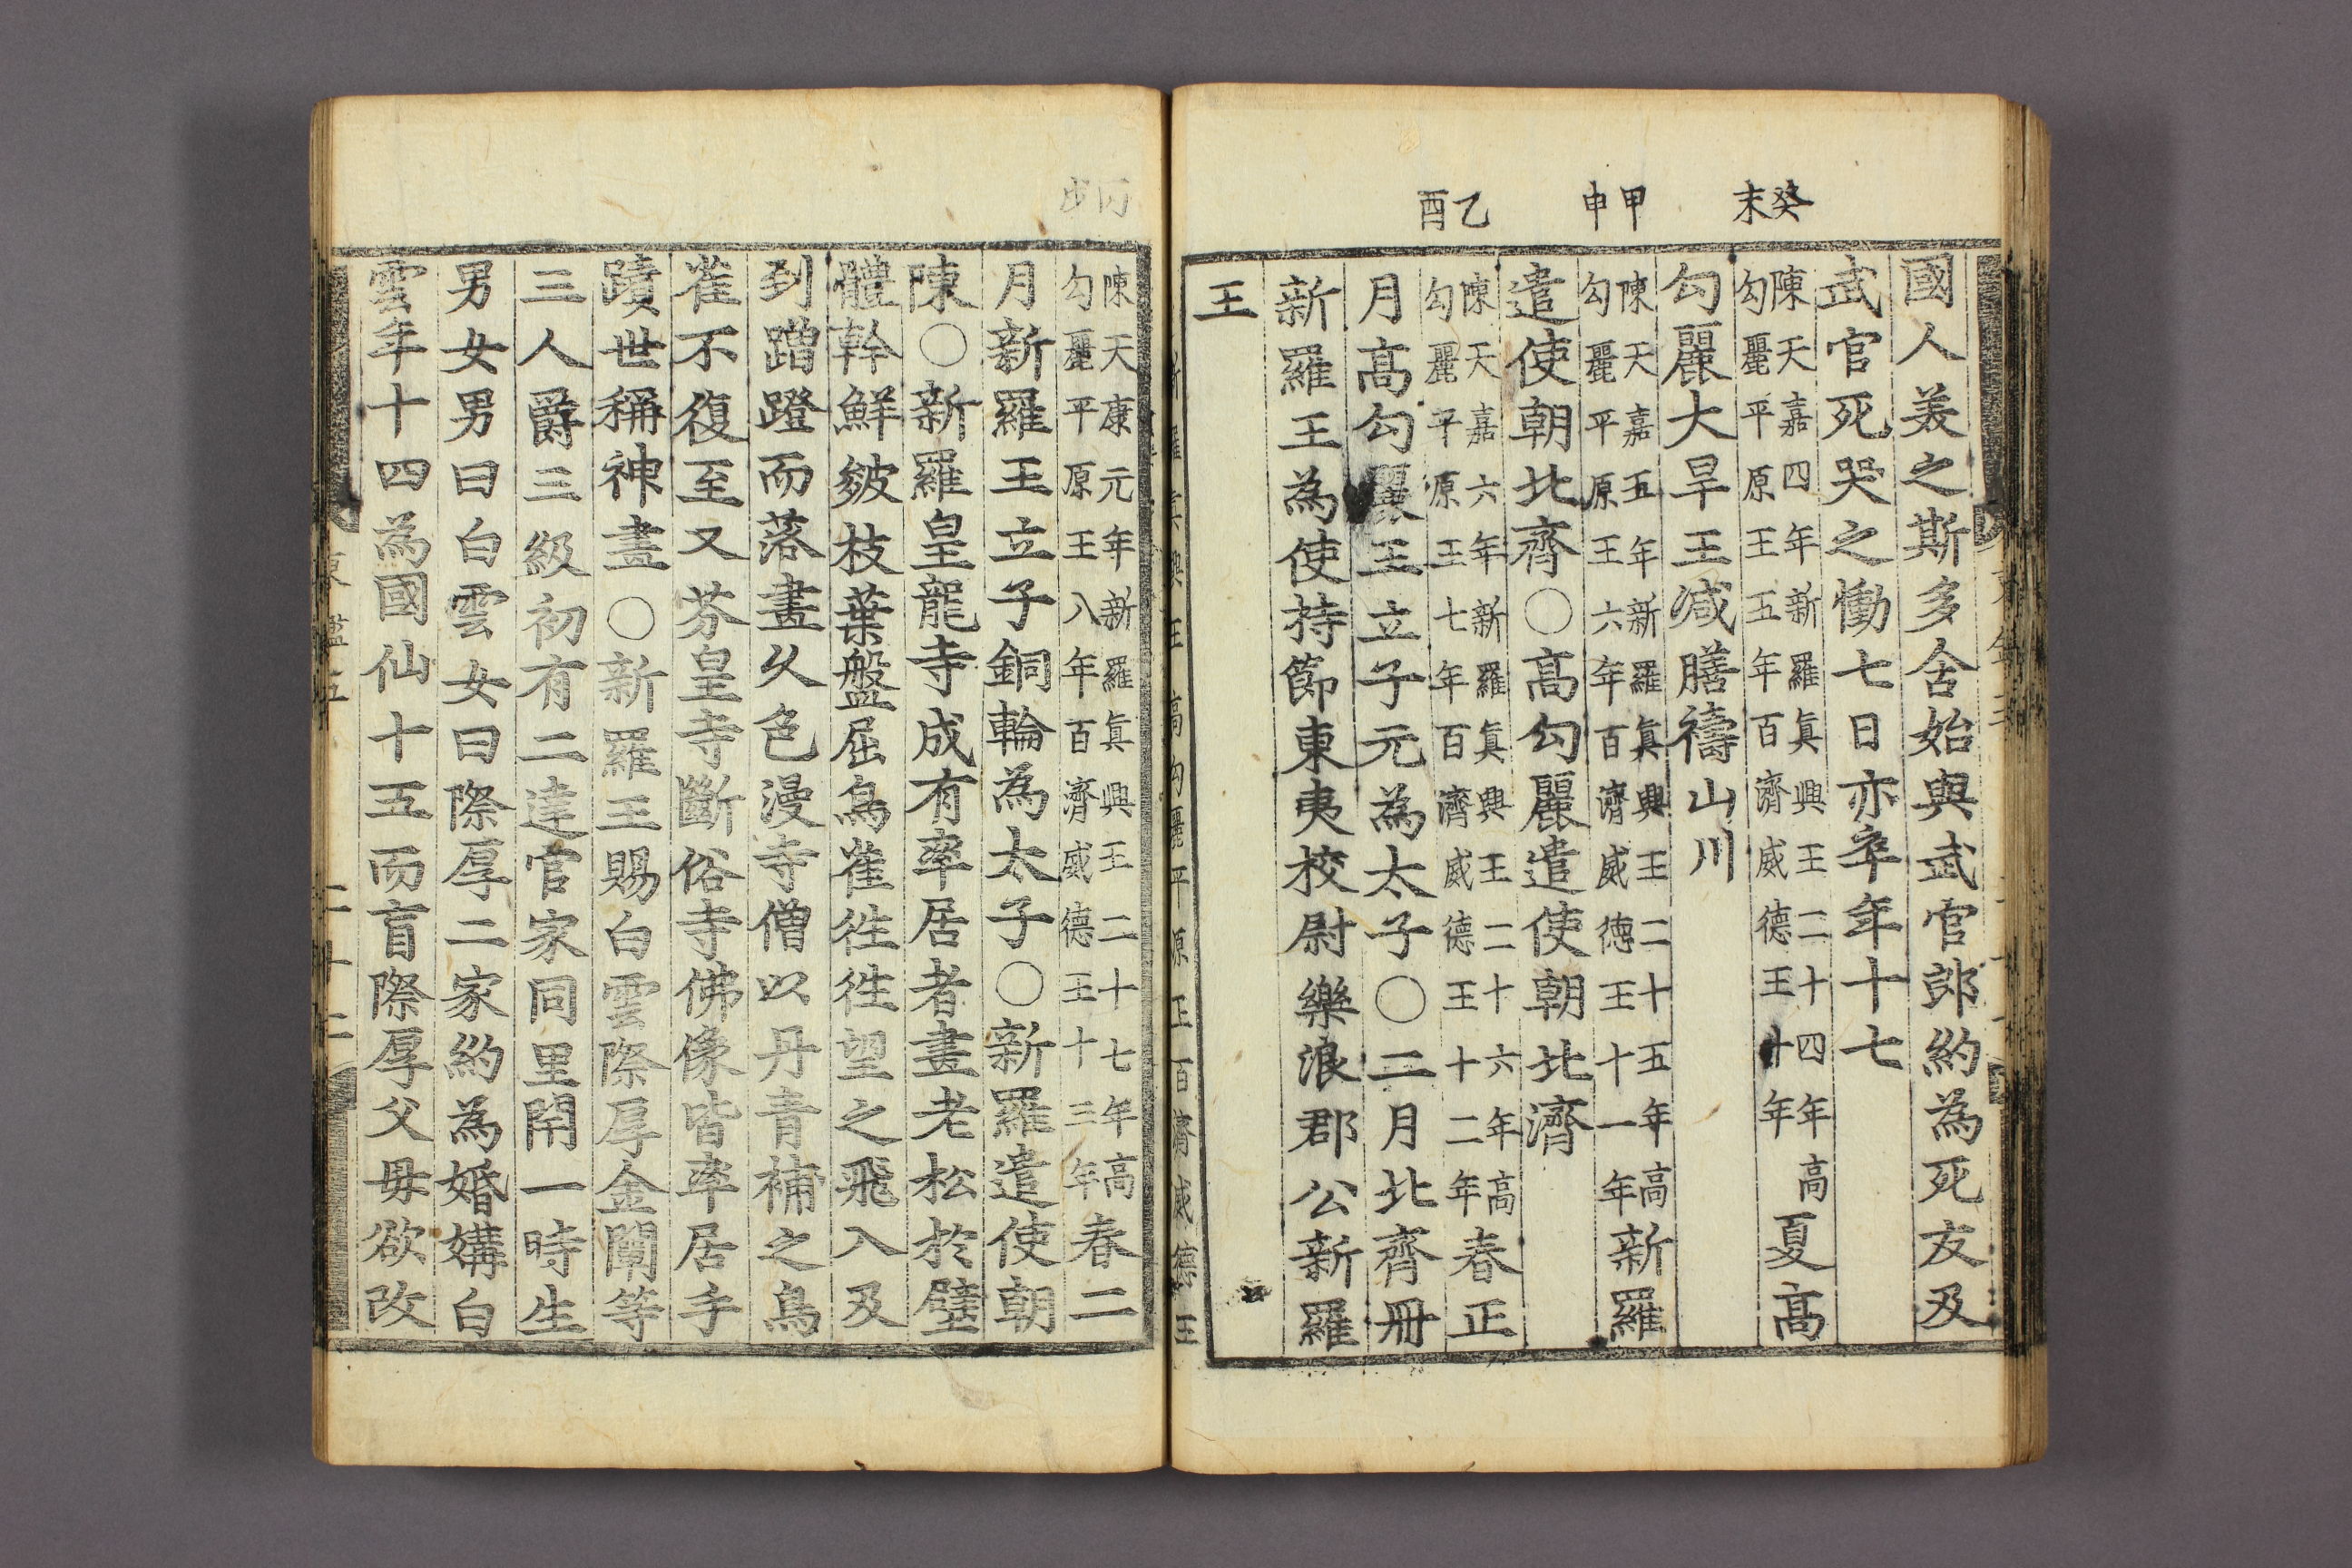 癸未
甲申
乙酉
國人美之斯多含始與武官郎約為死友及
武官死哭之慟七日亦卒年十七
陳天嘉四年新羅眞興王二十四年高
勾麗平原王五年百濟威德王十年
夏高
勾麗大旱王减膳禱山川
陳天嘉五年新羅眞興王二十五年高
勾麗平原王六年百濟威德王十一年
新羅
遣使朝北齊○高勾麗遣使朝北濟
陳天嘉六年新羅眞興王二十六年高
勾麗平原王七年百濟威德王十二年
春正
月高勾麗王立子元為太子○二月北齊冊
新羅王為使持節東夷校尉樂浪郡公新羅
王
新羅眞興王 高勾麗平原王 百濟威德王
丙戌
陳天康元年新羅眞興王二十七年高
勾麗平原王八年百濟威德王十三年
春二
月新羅王立子銅輪為太子○新羅遣使朝
陳○新羅皇龍寺成有率居者畫老松於壁
體幹鮮皴枝葉盤屈鳥雀徃徃望之飛入及
到蹭蹬而落畫久色漫寺僧以丹青補之鳥
雀不復至又芬皇寺斷俗寺佛像皆率居手
蹟世稱神畫○新羅王賜白雲際厚金闡等
三人爵三級初有二達官家同里閈一時生
男女男曰白雲女曰際厚二家約為婚媾白
雲年十四為國仙十五而盲際厚父毋欲改
東鑑五
二十二